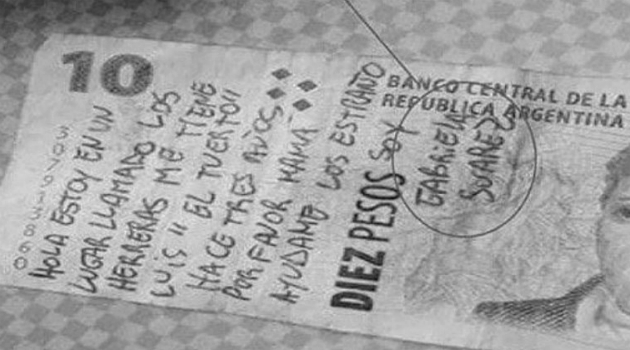 10
50791386O
HOLA ESTOY EN UN
LUGAR LLAMADO LOS
HERRERAS ME TIENE
LUIS "EL TUERTO"
HACE TRES AÑOS
POR FAVOR MAMÁ
AYUDAME LOS ESTRAÑO
DIEZ PESOS
SOY
GABRIELA
SUAREZ
BANCO CENTRAL DE LA
REPÚBLICA ARGENTINA